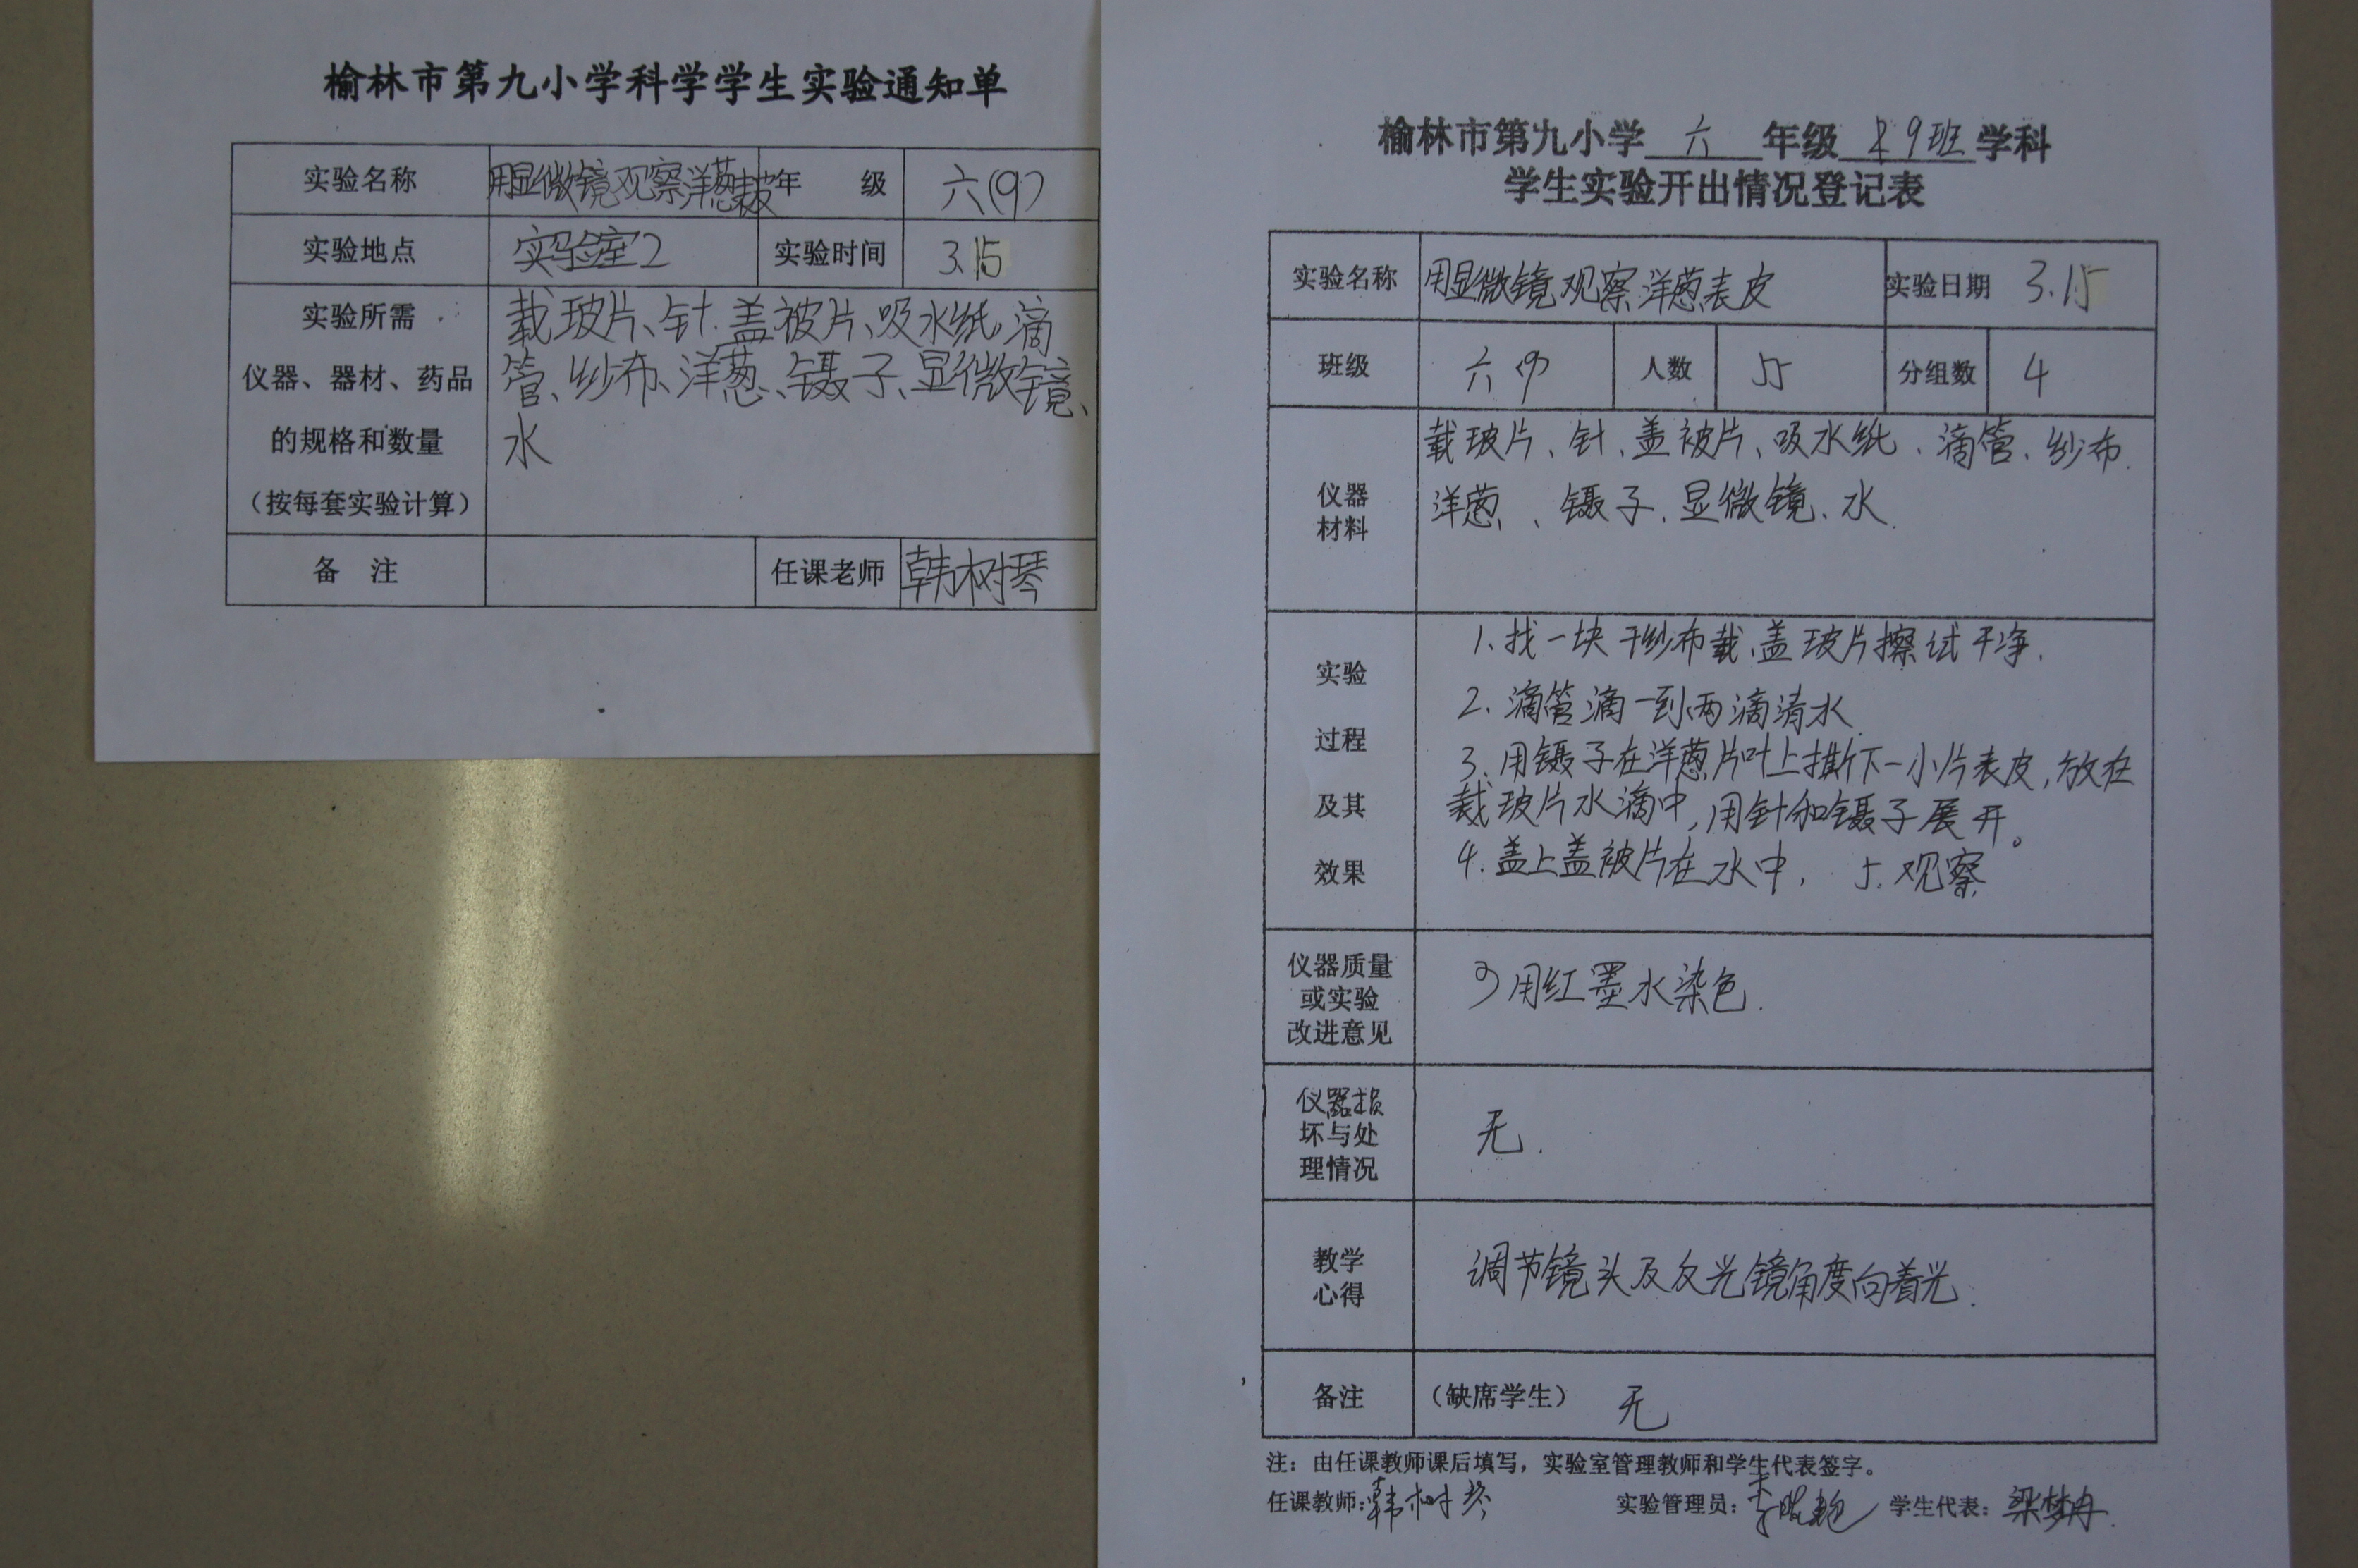 榆林市第九小学科学学生实验通知单
实验名称 用显微镜观察洋葱表皮 年 级 六(9)
实验地点 实验室2 实验时间 3.15
实验所需
仪器、器材、药品
的规格和数量
（按每套实验计算）
载玻片、针、盖被片、吸水纸、滴
管、纱布、洋葱、镊子、显微镜、
水
备 注 任课老师 韩树琴
榆林市第九小学 六 年级 9班 学科
学生实验开出情况登记表
实验名称 用显微镜观察洋葱表皮 实验日期 3.15
班级 六(9) 人数 55 分组数 4
仪器
材料
载玻片、针、盖被片、吸水纸、滴管、纱布.
洋葱、、镊子、显微镜、水.
实验
过程
及其
效果
1、找一块干纱布载、盖玻片擦试干净.
2、滴管滴一到两滴清水
3、用镊子在洋葱片叶上撕下一小片表皮,放在
载玻片水滴中,用针和镊子展开。
4.盖上盖被片在水中, 5.观察
仪器质量
或实验
改进意见
用红墨水染色.
仪器损
坏与处
理情况
无.
教学
心得
调节镜头及反光镜角度向着光.
备注 （缺席学生） 无
注：由任课教师课后填写，实验室管理教师和学生代表签字。
任课教师：韩树琴 实验管理员：李 学生代表：梁梦冉.